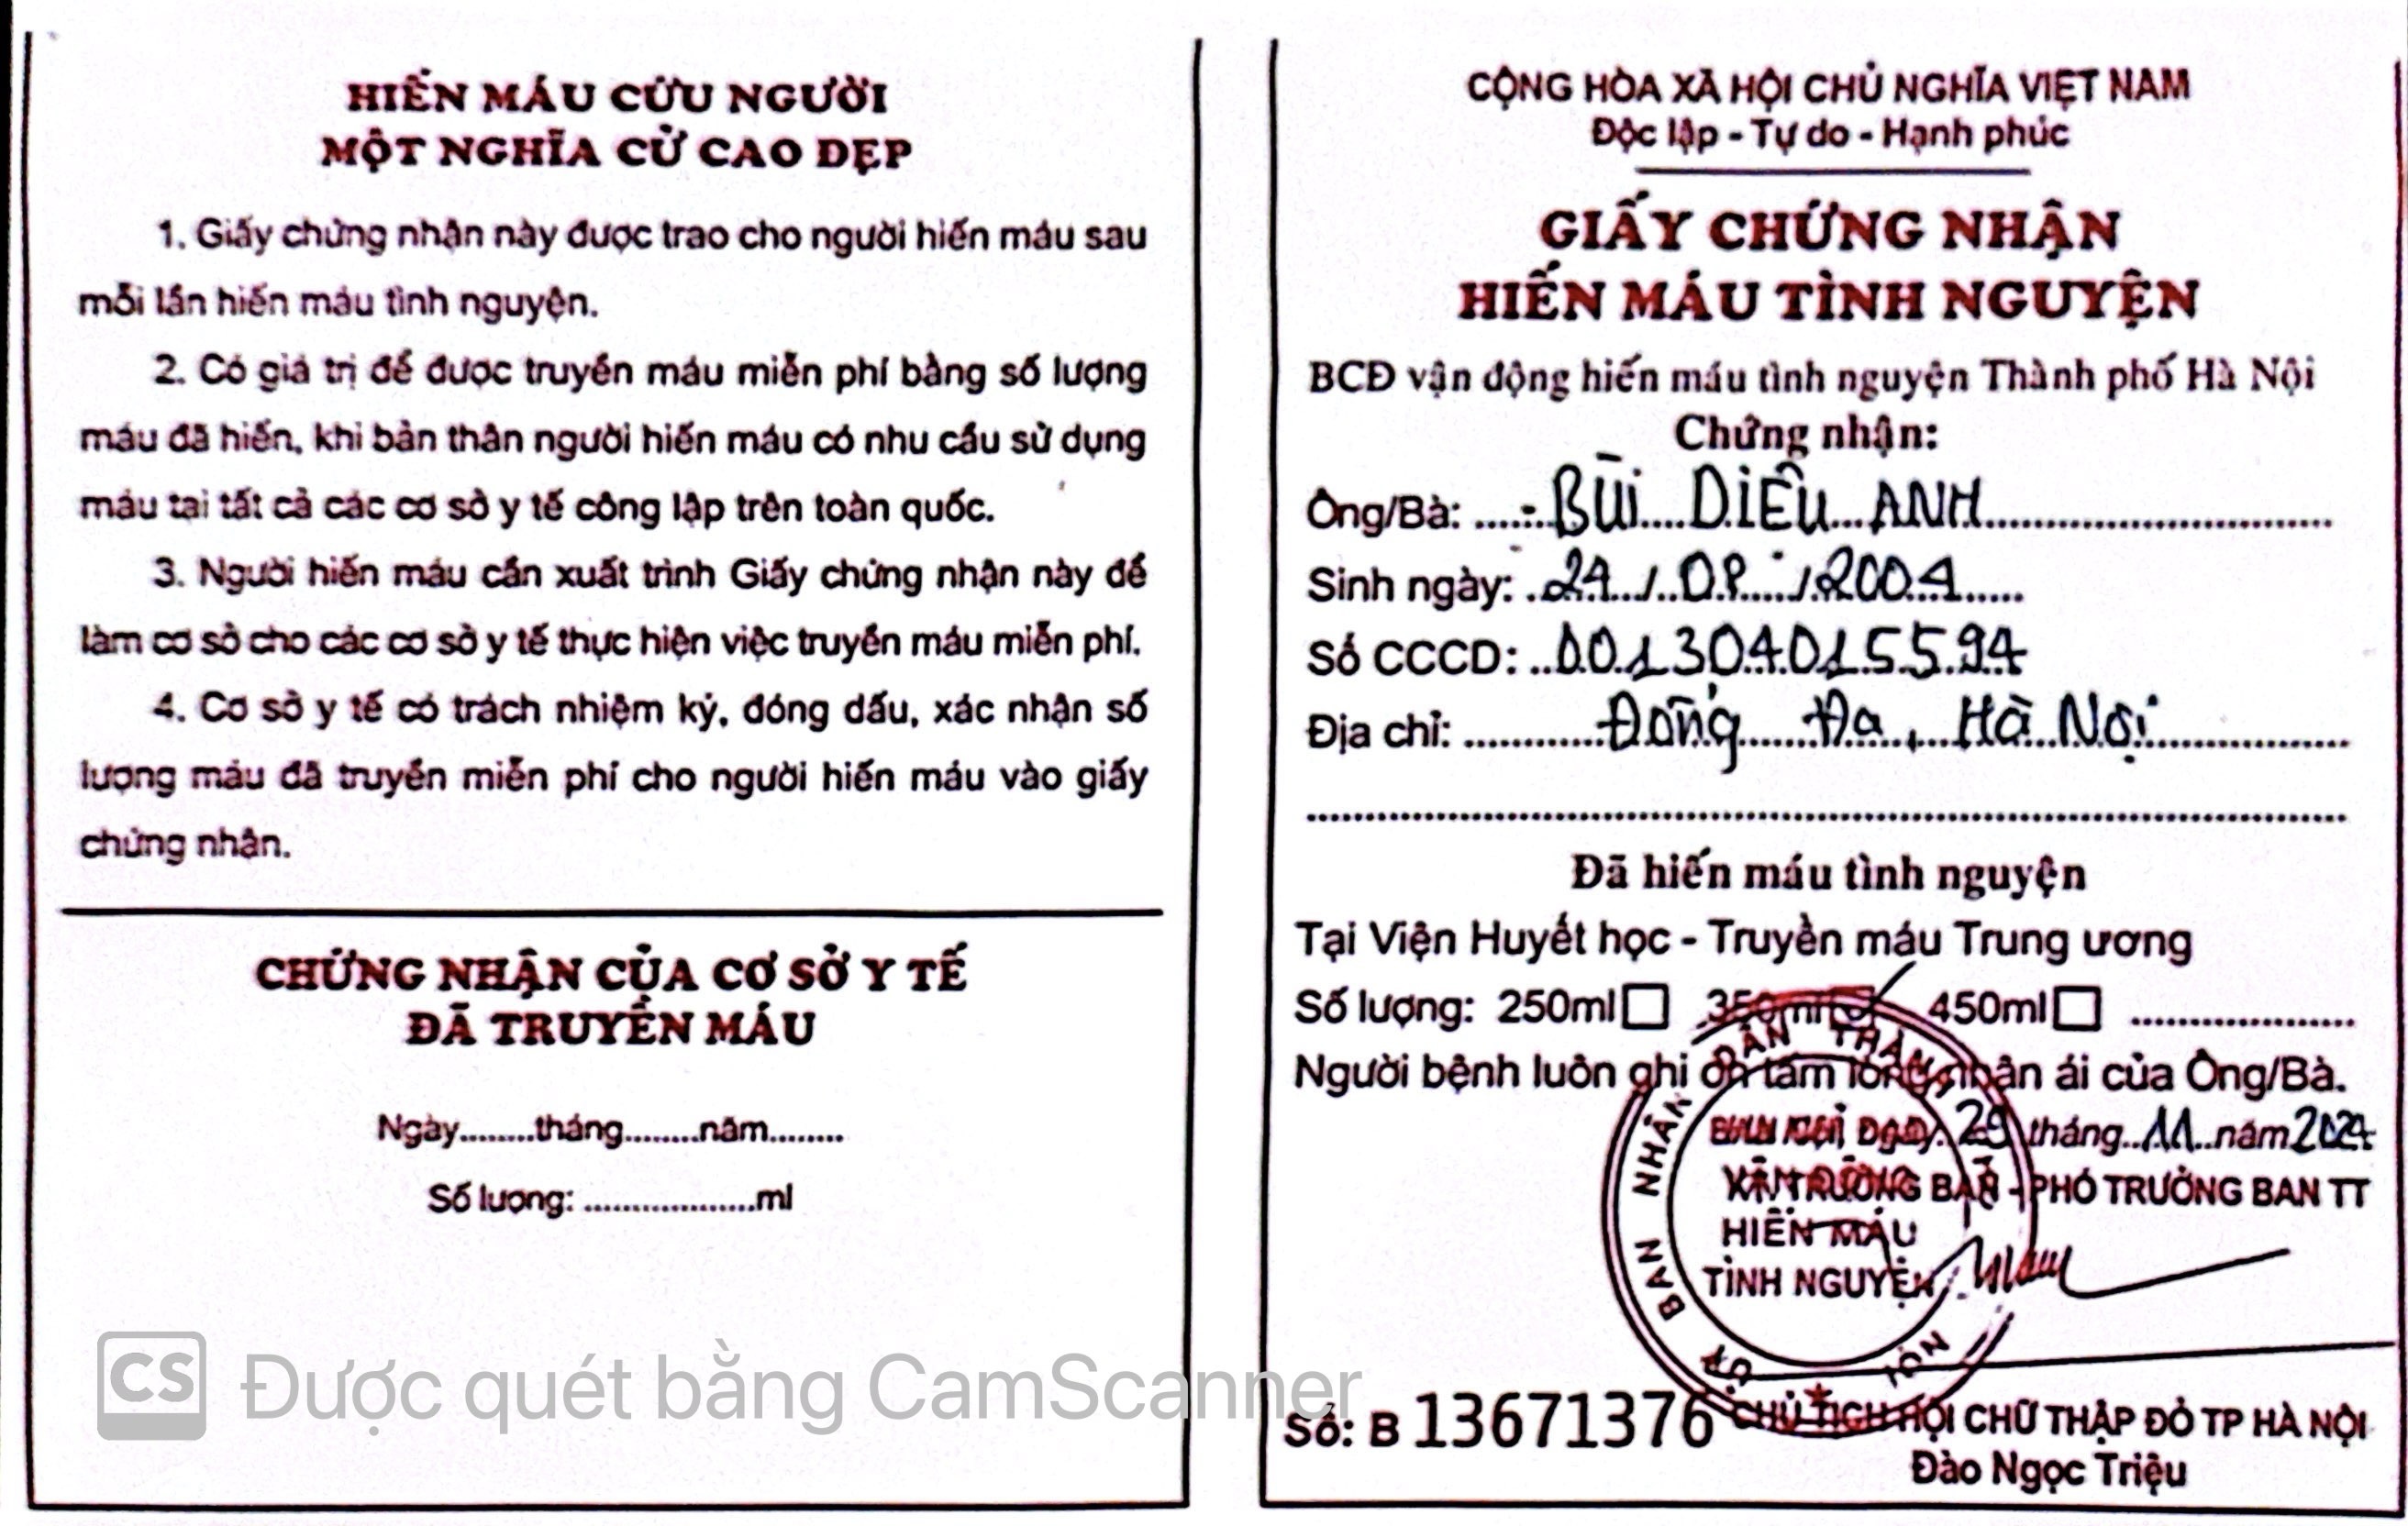 HIẾN MÁU CỨU NGƯỜI
MỘT NGHĨA CỬ CAO ĐẸP
1. Giấy chứng nhận này được trao cho người hiến máu sau
mỗi lần hiến máu tình nguyện.
2. Có giá trị để được truyền máu miễn phí bằng số lượng
máu đã hiến, khi bản thân người hiến máu có nhu cầu sử dụng
máu tại tất cả các cơ sở y tế công lập trên toàn quốc.
3. Người hiến máu cần xuất trình Giấy chứng nhận này để
làm cơ sở cho các cơ sở y tế thực hiện việc truyền máu miễn phí.
4. Cơ sở y tế có trách nhiệm ký, đóng dấu, xác nhận số
lượng máu đã truyền miễn phí cho người hiến máu vào giấy
chứng nhận.
CHỨNG NHẬN CỦA CƠ SỞ Y TẾ
ĐÃ TRUYỀN MÁU
Ngày........tháng........năm........
Số lượng: ...................ml
CS Được quét bằng CamScanner
CỘNG HÒA XÃ HỘI CHỦ NGHĨA VIỆT NAM
Độc lập - Tự do - Hạnh phúc
GIẤY CHỨNG NHẬN
HIẾN MÁU TÌNH NGUYỆN
BCĐ vận động hiến máu tình nguyện Thành phố Hà Nội
Chứng nhận:
Ông/Bà: BÙI DIỆU ANH
Sinh ngày: 24 / 08 / 2004
Số CCCD: 001304015594
Địa chỉ: Đống Đa, Hà Nội
Đã hiến máu tình nguyện
Tại Viện Huyết học - Truyền máu Trung ương
Số lượng: 250ml 350ml 450ml
Người bệnh luôn ghi ơn tấm lòng nhân ái của Ông/Bà.
29 tháng 11 năm 2024
KT. TRƯỞNG BAN - PHÓ TRƯỞNG BAN TT
ỦY BAN NHÂN DÂN THÀNH NỘI
BAN CHỈ ĐẠO
VẬN ĐỘNG
HIẾN MÁU
TÌNH NGUYỆN
Số: B 13671376
CHỦ TỊCH HỘI CHỮ THẬP ĐỎ TP HÀ NỘI
Đào Ngọc Triệu